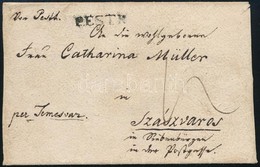 Von Pesth.
PESTH
An die wohlgeborene
Frau Catharina Müller
in
per Temesvar.
Szászvaros
in Siebenbürgen
in der